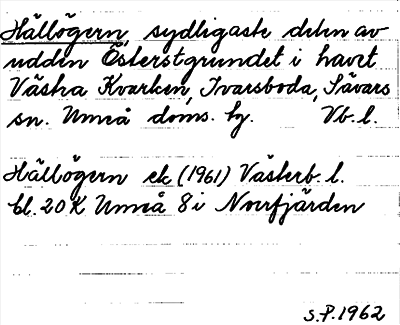 Hällögern, sydligaste delen av
udden Österstgrundet i havet
Västra Kvarken, Ivarsboda, Sävars
sn. Umeå doms. hg. Vb. l.
Hällögern ek (1961) Västerb. l.
bl. 20 K Umeå 8 i Norrfjärden
S.P. 1962